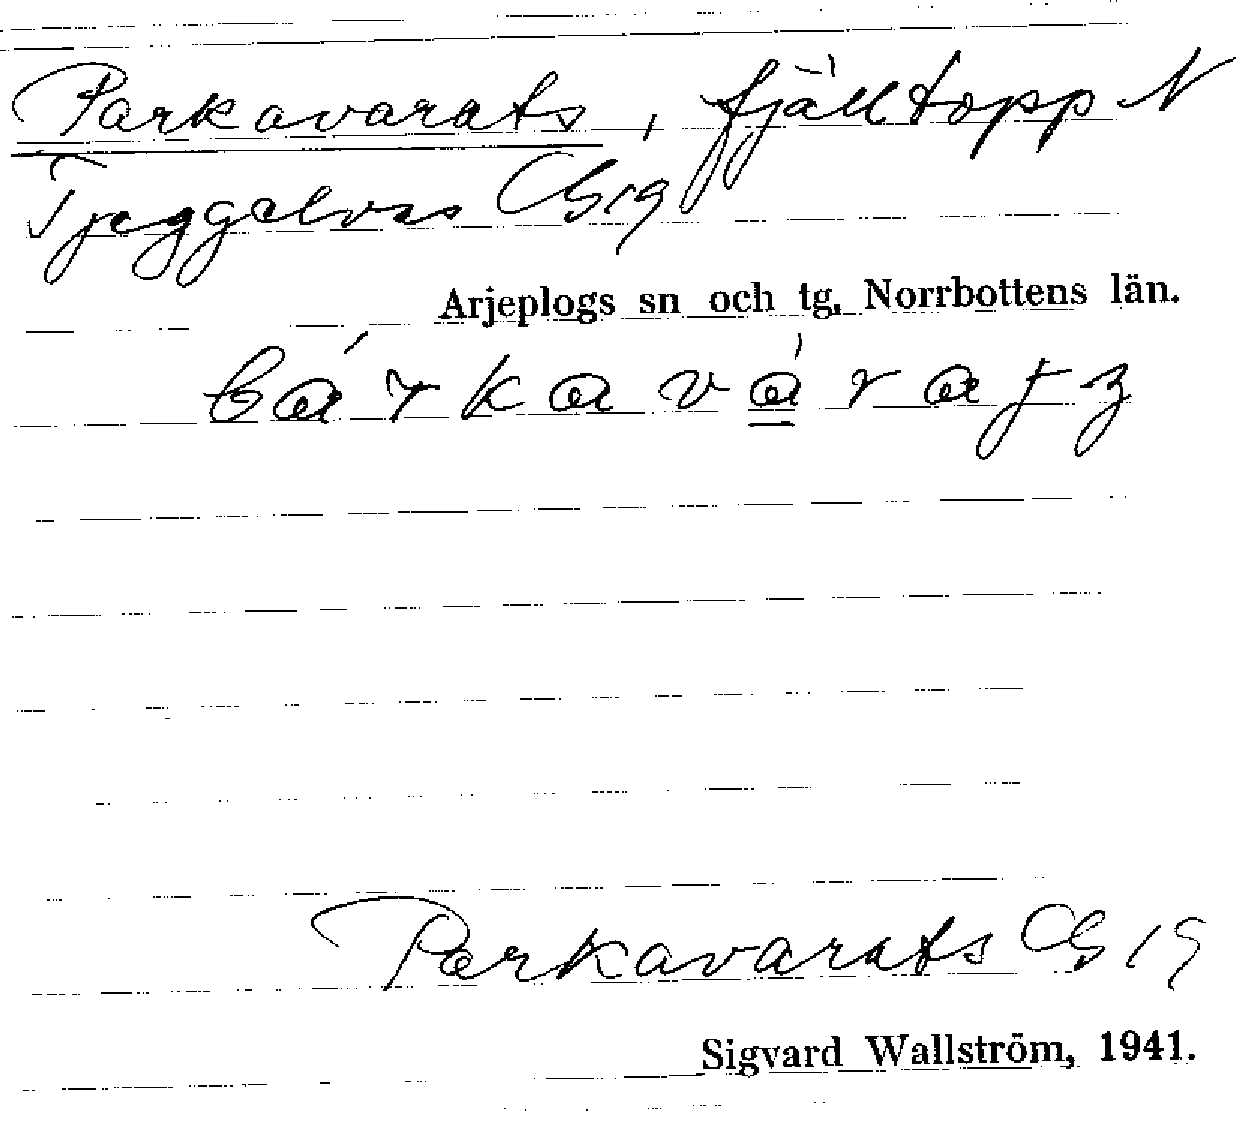 Parkavarats, fjälltopp N
Tjeggelvas CG 19
Arjeplogs sn och tg, Norrbottens län.
bárkavárat̨ʒ
Parkavarats CG 19
Sigvard Wallström, 1941.